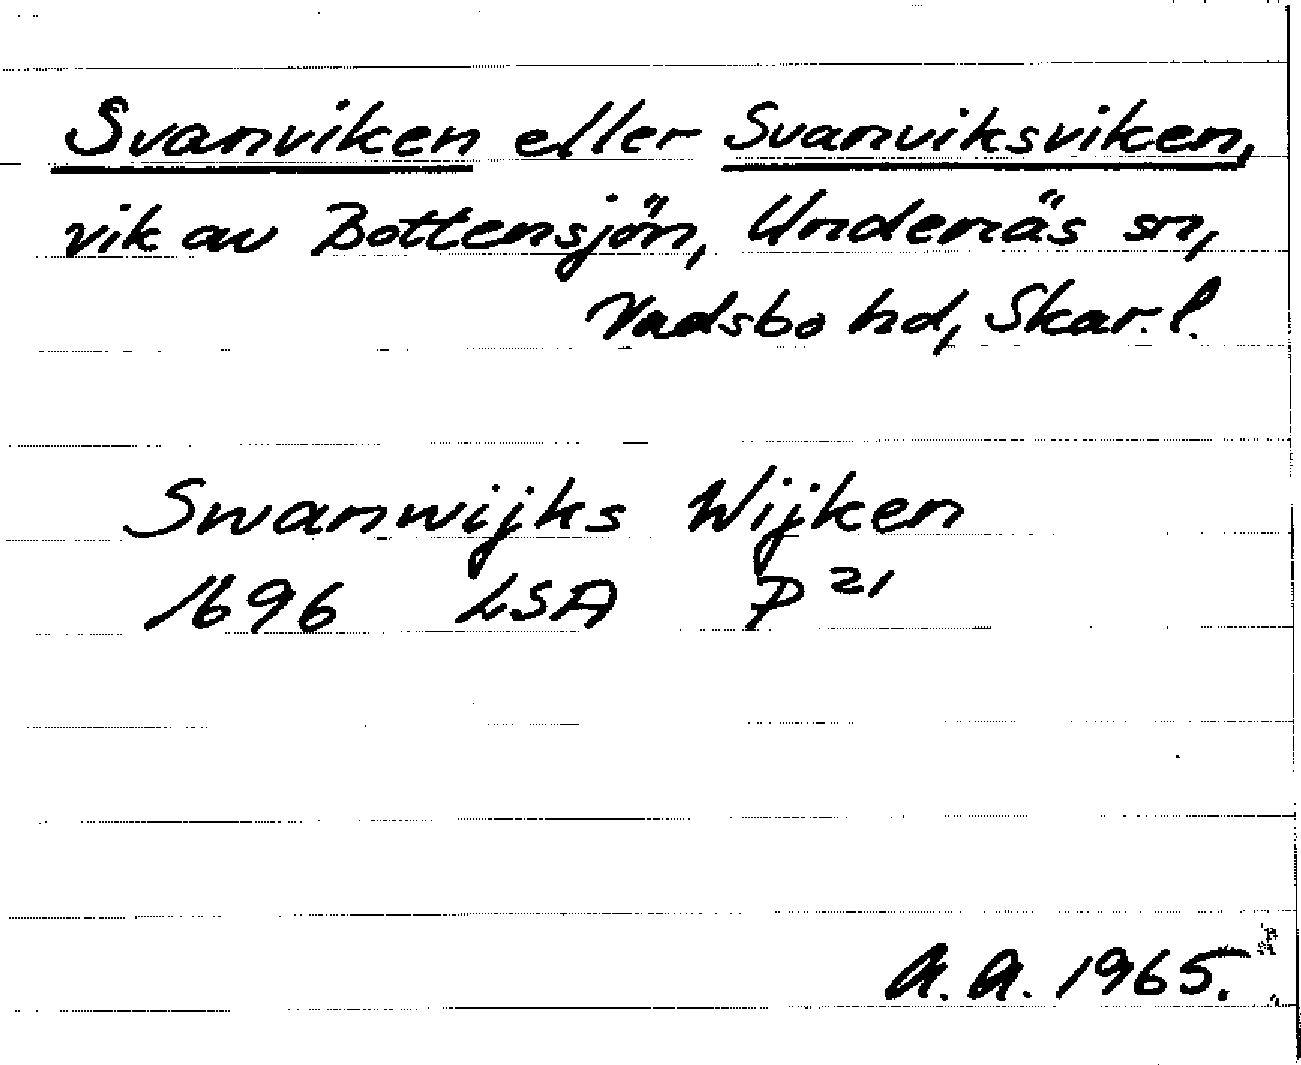 Svanviken eller Svanviksviken,
vik av Bottensjön, Undenäs sn,
Vadsbo hd, Skar. l.
Swanwijks Wijken
1696 LSA P 21
A. A. 1965.